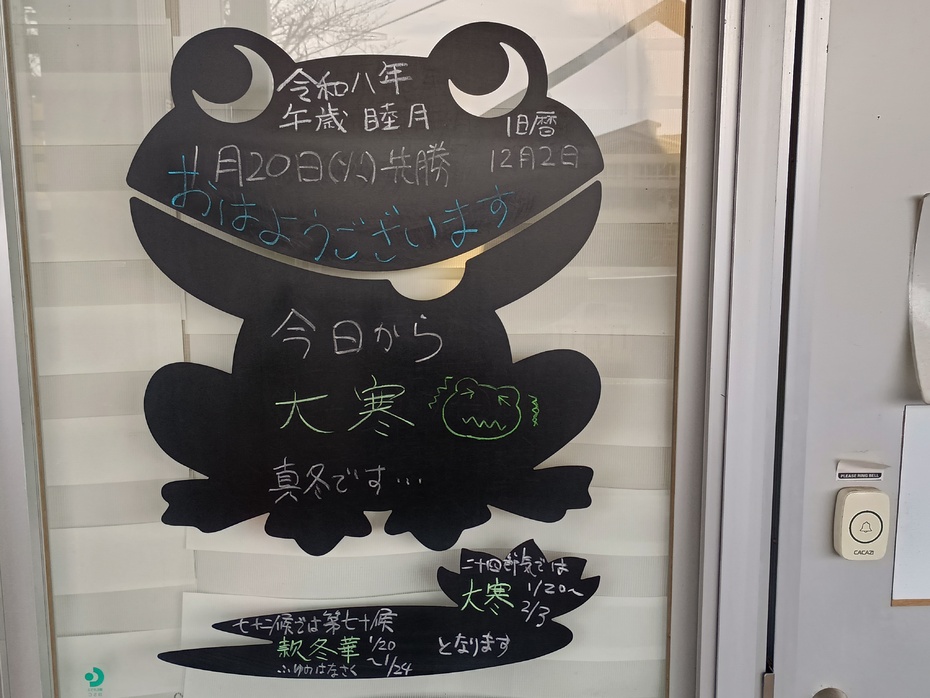 令和八年
午歳 睦月
旧暦
12月2日
1月20日(火)先勝
おはようございます
今日から
大寒
真冬です…
二十四節気では
大寒 1/20~
2/3
七十二候では第七十候
款冬華 1/20
~1/24
ふゆのはなさく
となります
PLEASE RING BELL
CACAZI